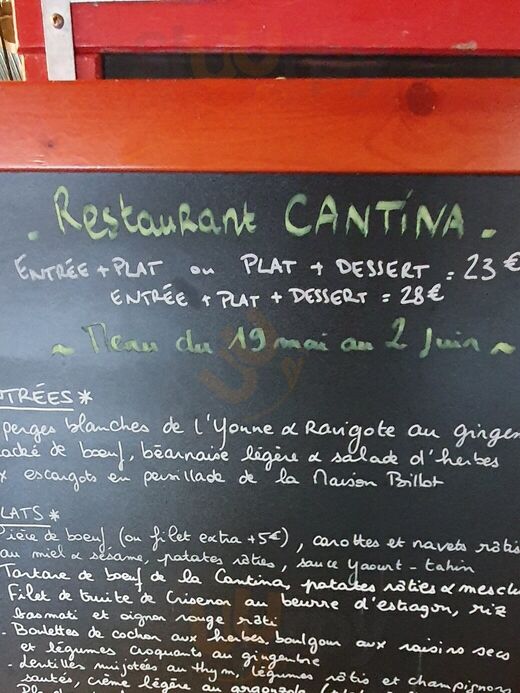 - Restaurant CANTINA -
ENTRÉE + PLAT ou PLAT + DESSERT = 23€
ENTRÉE + PLAT + DESSERT = 28€
~ Menu du 19 mai au 2 juin ~
TRÉES *
perges blanches de l'Yonne & Ravigote au gingem
de boeuf, béarnaise légère & salade d'herbes
x escargots en persillade de la Maison Billot
LATS *
Pièce de boeuf (ou filet extra +5€), carottes et navets rôtis
au miel & sésame, patates rôties, sauce yaourt-tahin
Tartare de boeuf de la Cantina, patates rôties & mesclu
Filet de truite de Crisenon au beurre d'estragon, riz
basmati et oignon rouge rôti
- Boulettes de cochon aux herbes, boulgour aux raisins secs
et légumes croquants au gingembre
- Lentilles mijotées au thym, légumes rôtis et champignons
sautés, crème légère au